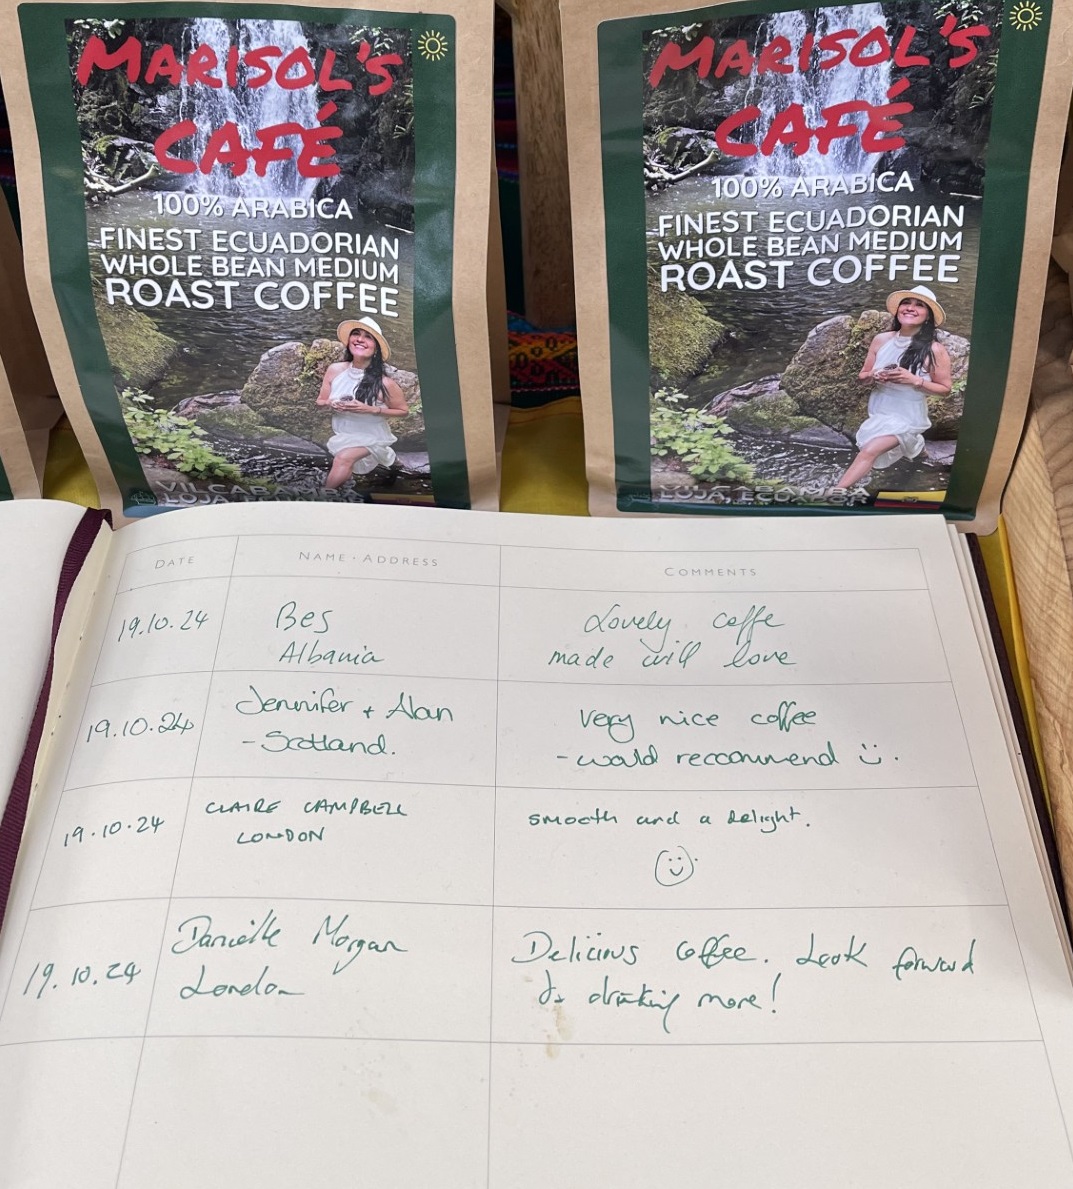 MARISOL'S
CAFÉ
100% ARABICA
FINEST ECUADORIAN
WHOLE BEAN MEDIUM
ROAST COFFEE
VILCABAMBA
LOJA, ECUADOR
MARISOL'S
CAFÉ
100% ARABICA
FINEST ECUADORIAN
WHOLE BEAN MEDIUM
ROAST COFFEE
VILCABAMBA
LOJA, ECUADOR
DATE NAME · ADDRESS COMMENTS
19.10.24 Bes Lovely coffe
Albania made will love
19.10.24 Jennifer + Alan very nice coffee
- Scotland. - would reccommend :).
19.10.24 CLAIRE CAMPBELL smooth and a delight.
LONDON
19.10.24 Danielle Morgan Delicious coffee. Look forward
London to drinking more!